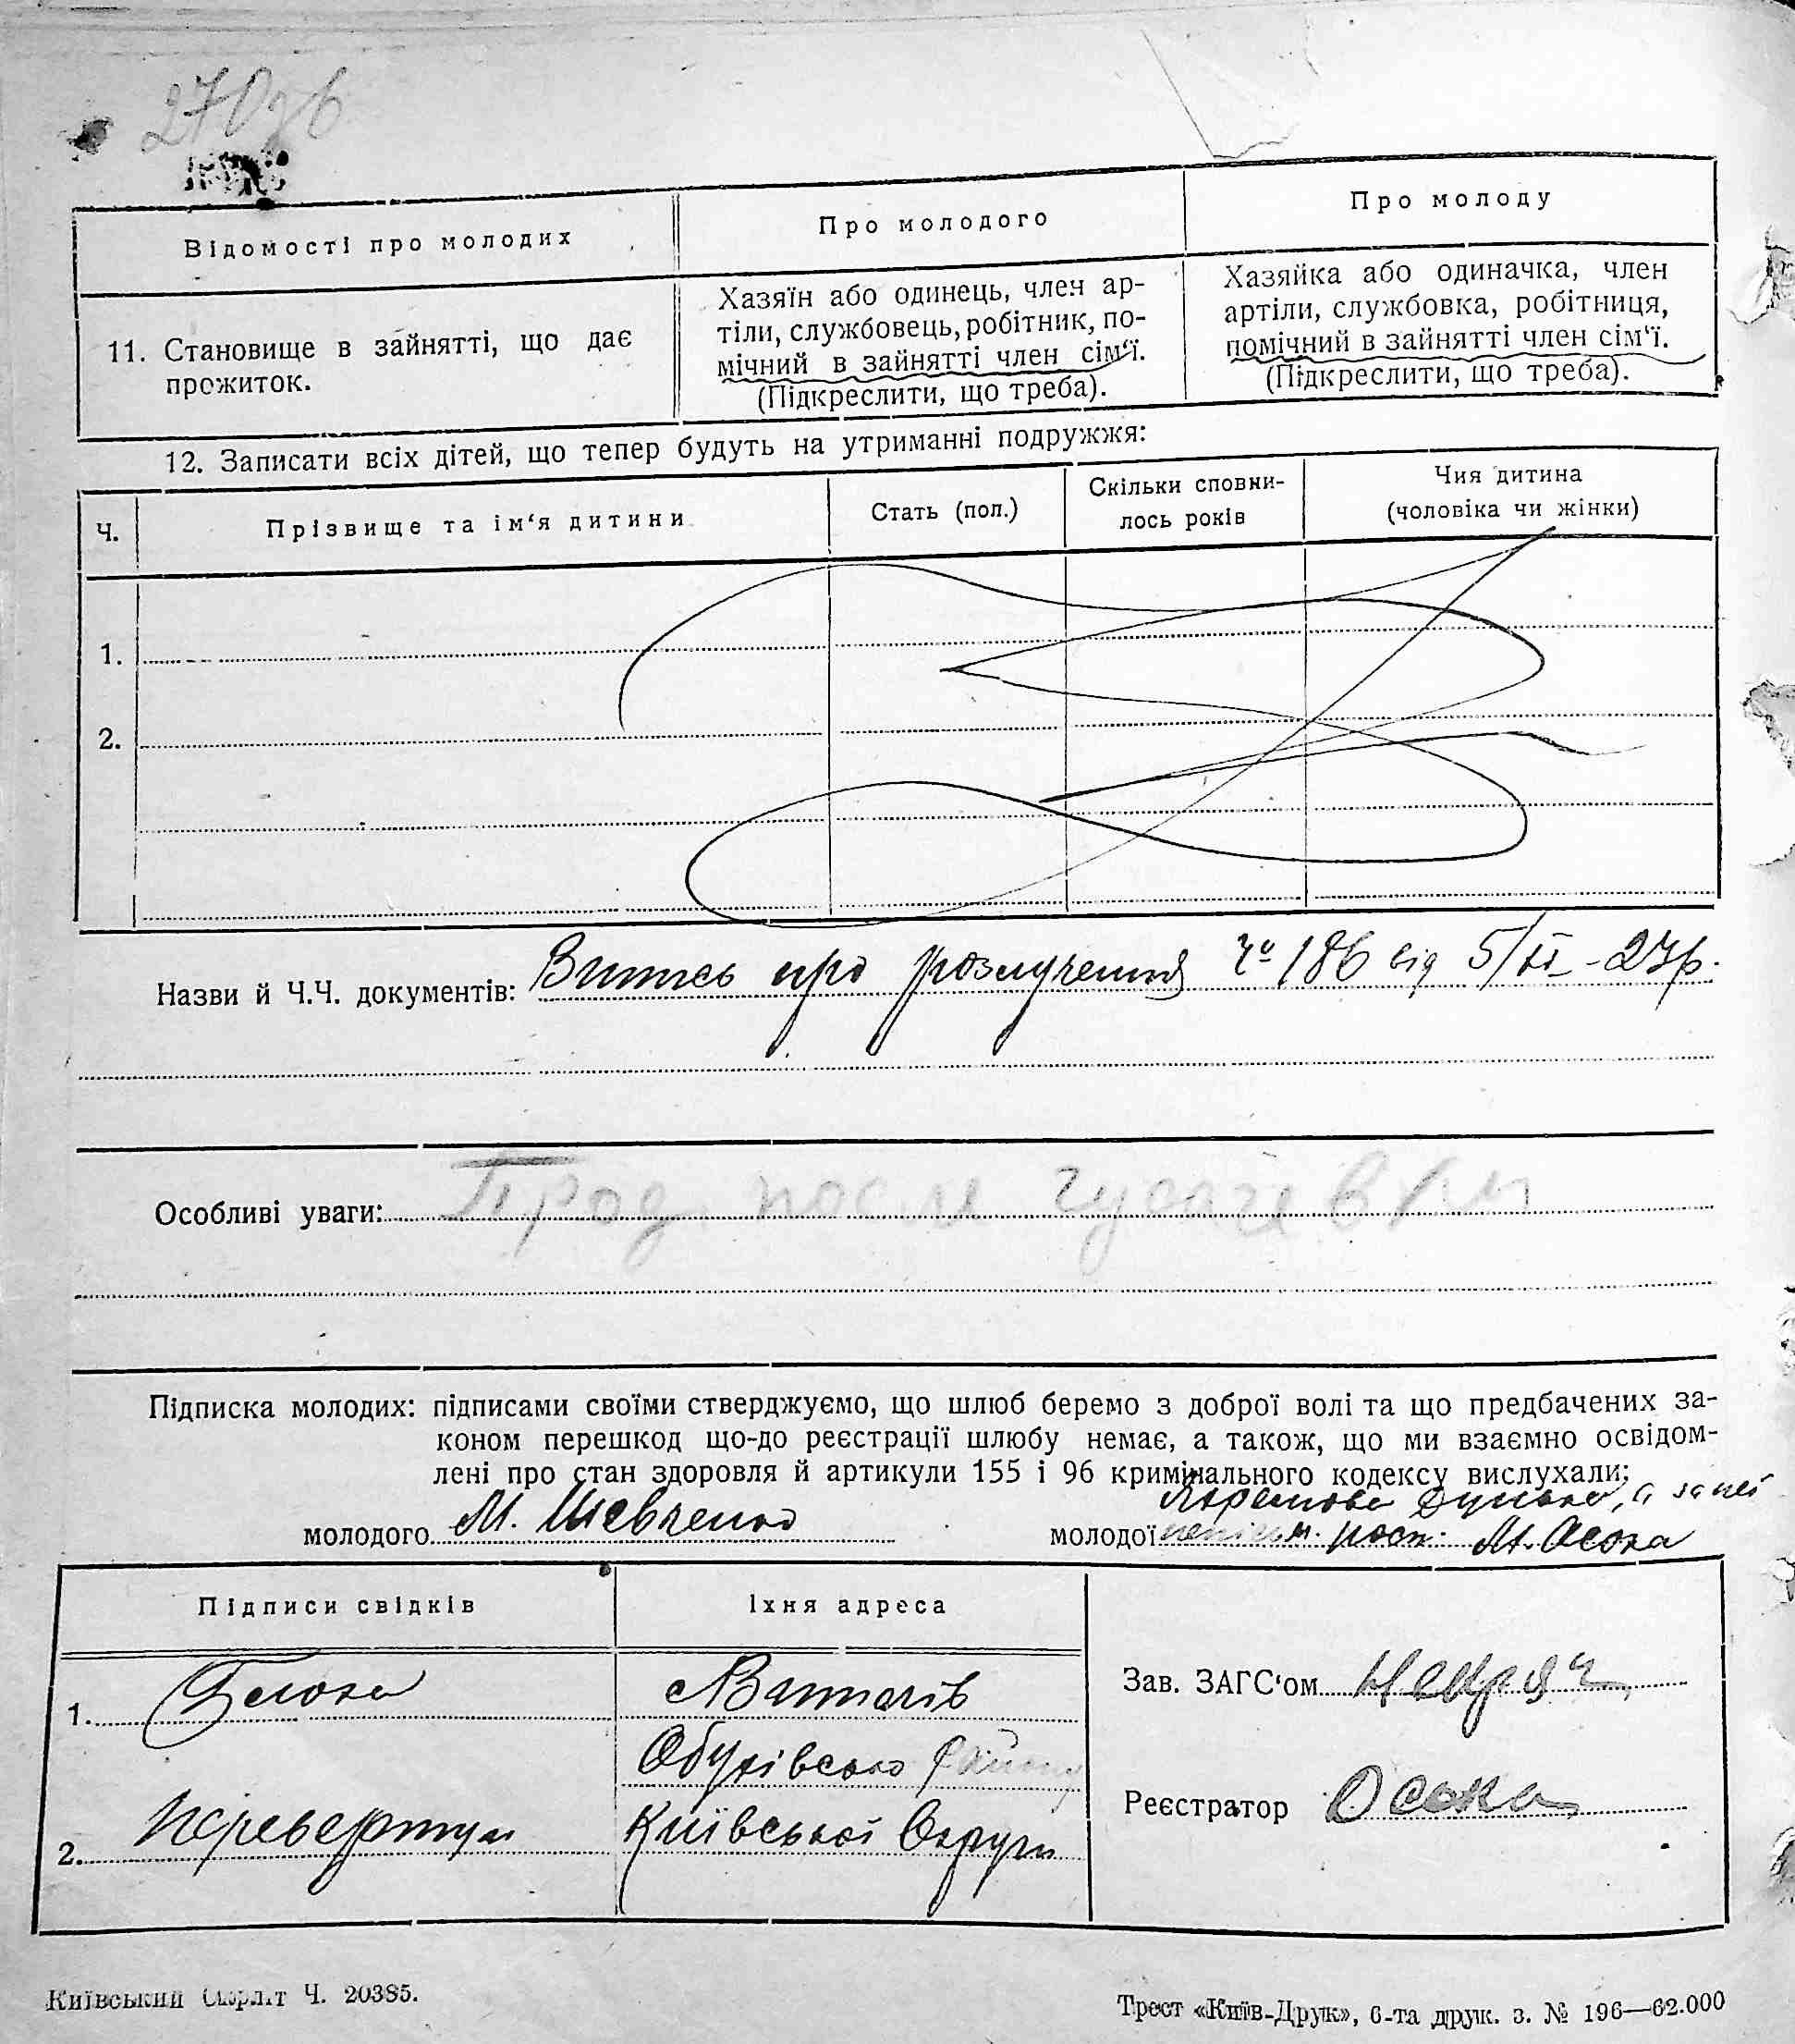 270зв
Відомості про молодих
Про молодого
Про молоду
11. Становище в зайнятті, що дає
прожиток.
Хазяїн або одинець, член ар-
тіли, службовець, робітник, по-
мічний в зайнятті член сім‘ї.
(Підкреслити, що треба).
Хазяйка або одиначка, член
артіли, службовка, робітниця,
помічний в зайнятті член сім‘ї.
(Підкреслити, що треба).
12. Записати всіх дітей, що тепер будуть на утриманні подружжя:
Ч.
Прізвище та ім‘я дитини
Стать (пол.)
Скільки сповни-
лось років
Чия дитина
(чоловіка чи жінки)
1.
2.
Назви й Ч.Ч. документів: Витяг про розлучення Чº 186 від 5/XI-27р.
Особливі уваги: Прод после
Підписка молодих: підписами своїми стверджуємо, що шлюб беремо з доброї волі та що предбачених за-
коном перешкод що-до реєстрації шлюбу немає, а також, що ми взаємно освідом-
лені про стан здоровля й артикули 155 і 96 кримінального кодексу вислухали:
а за неї
молодого М. Шевченко
молодої неписьм. росп. М. Осока
Підписи свідків
Їхня адреса
1.
Витачів
Обухівсько району
2. Перевертун
Київської Округи
Зав. ЗАГС‘ом
Реєстратор Осока
Київський Окрліт Ч. 20385.
Трест «Київ-Друк», 6-та друк. з. № 196—62.000